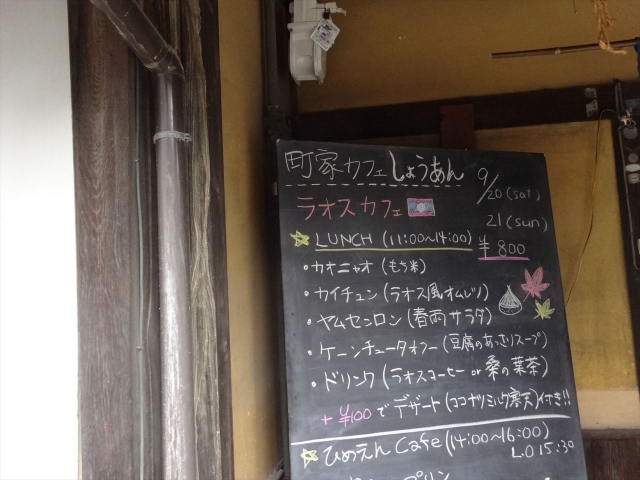 町家カフェしょうあん 9/20(sat)
ラオスカフェ 21(sun)
LUNCH (11:00~14:00) ¥800
・カオニャオ(もち米)
・カイチュン(ラオス風オムレツ)
・ヤムセンロン(春雨サラダ)
・ケーンチュータオフー(豆腐のあっさりスープ)
・ドリンク(ラオスコーヒー or 桑の葉茶)
+¥100でデザート(ココナツミルク寒天)付き!!
ひめえん Cafe (14:00~16:00)
L.O 15:30
プリン